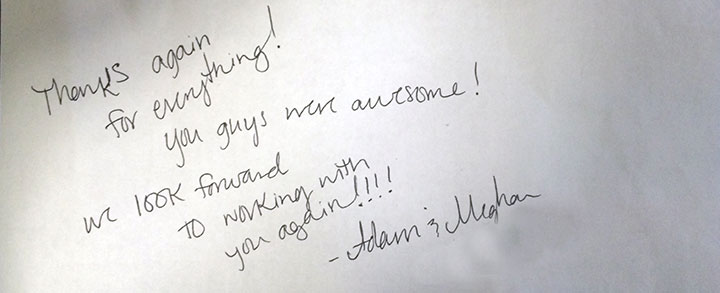 Thanks again
for everything!
you guys were awesome!
we look forward
to working with
you again!!!!
- Adam & Meghan